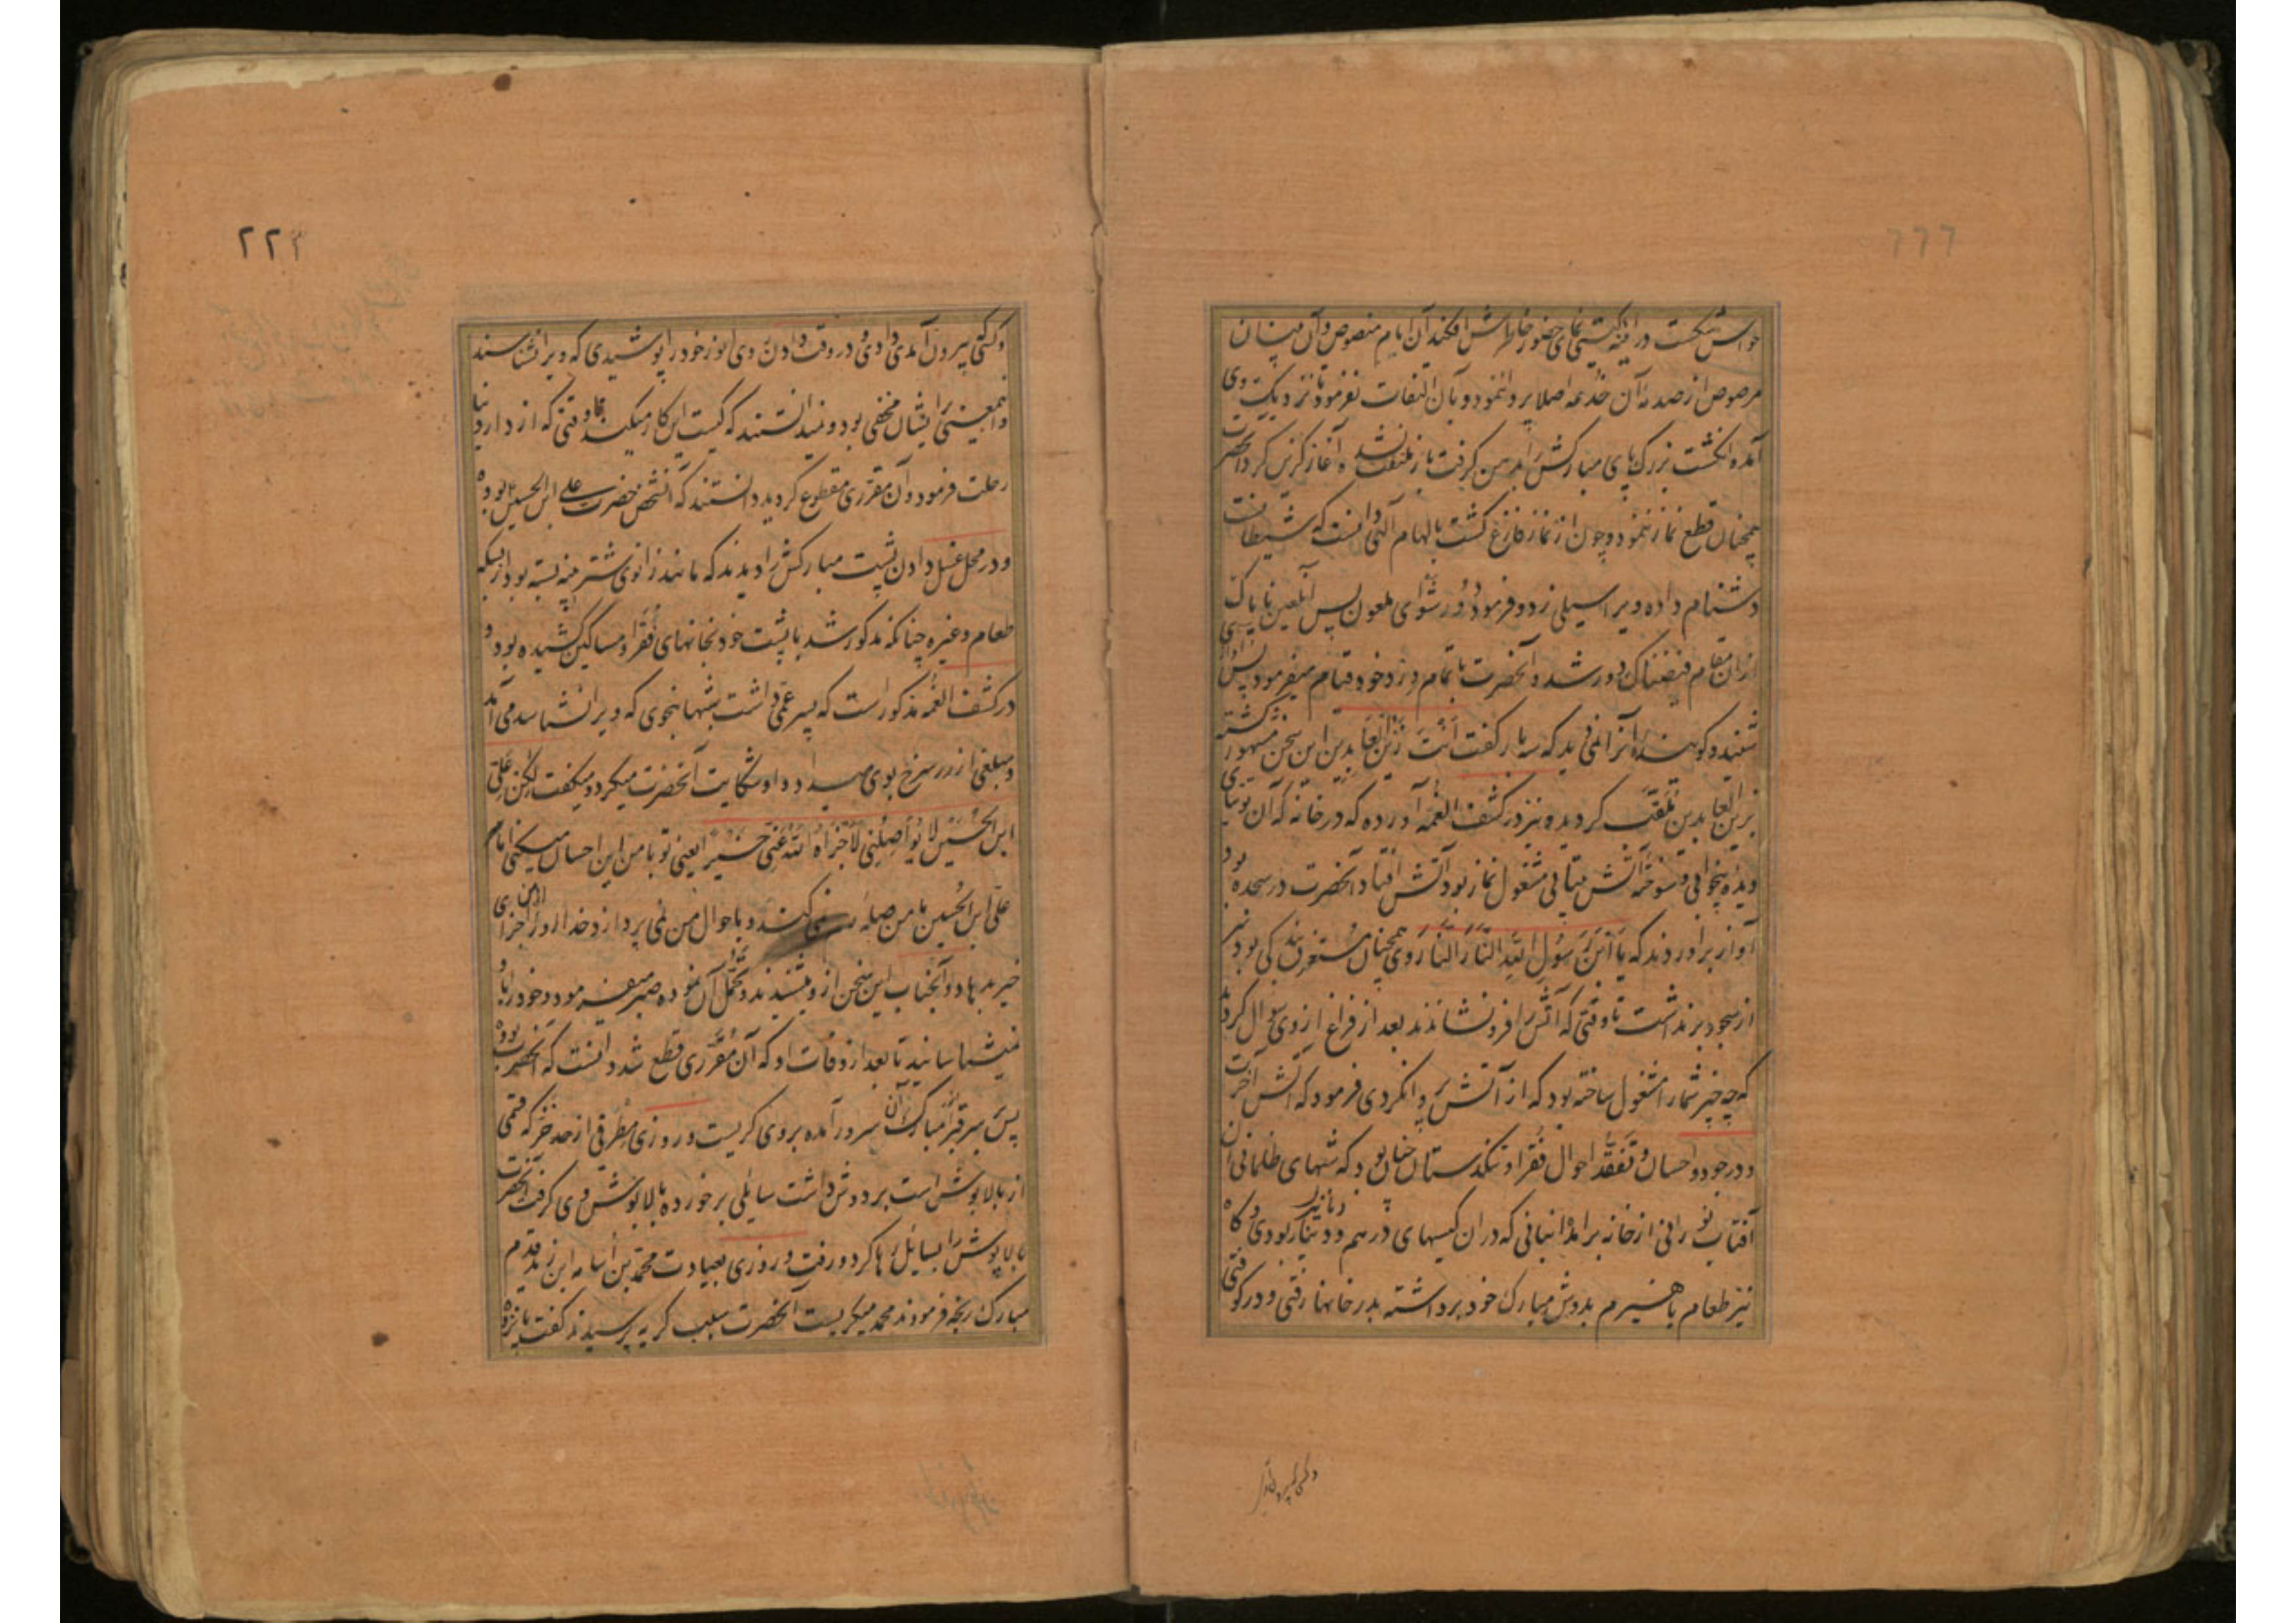 حواس شکست در آینه گیتی نمای حضور خاطرش افکند آن امام منصوص و آن بنیان
مرصوص از صدمهٔ آن خدعه اصلا پروا ننمود و بآن التفات نفرمود تا نزدیک وی
آمده انگشت بزرک پای مبارکش را بدهن گرفت باز ملتفت نشد و آغاز گزیدن کرد آنحضرت
همچنان قطع نماز ننمود و چون از نماز فارغ گشت بالهام آلهی دانست که شیطانست
دشنام داده ویرا سیلی زد و فرمود دور شو ای ملعون پس آن لعین ناپاک
از ان مقام فیضناک دور شد و آنحضرت با تمام ورد خود قیام میفرمود پس آوازی
شنید و گوینده آنرا نمی دید که سه بار گفت اَنْتَ زَیْنُ العابدین این سخن مشهور گشته
بزین العابدین ملقب گردیده و نیز در کشف الغمه آورده که در خانه که آن توتیای
دیده بیخوابی و سوختهٔ آتش بیتابی مشغول نماز بود آتش افتاد و آنحضرت در سجده بود
آواز برآوردند که یا ابْنَ رَسُولِ اللّهِ النّارَ النّارَ وی همچنان مستغرق بندگی بود سر
از سجود برنداشت تا وقتی که آتش را فرو نشاندند بعد از فراغ از وی سوال کردند
که چه چیز شما را مشغول ساخته بود که از آتش پروا نکردی فرمود که آتش آخرت
و در جود و احسان و تفقد احوال فقرا و تنگدستان چنان بود که شبهای ظلمانی آن
آفتاب نورانی از خانه برآمد انبانی که در ان کیسهای درهم و دینار بودی و گاه
دنانیر
نیز طعام یا هیزم بدوش مبارک خود برداشته بدر خانها رفتی و در کوفتی
و کسی بیرون آمدی
۲۲۳
و کسی بیرون آمدی دادی و در وقت دادن وی ابو از خود را پوشیدی که ویرا نشناسند
و اینمعنی بر ایشان مخفی بود و نمیدانستند که کیست این کار میکند تا وقتی که از دار دنیا
رحلت فرمود و آن مقرری مقطوع گردید دانستند که آنشخص حضرت علی ابن الحسین بوده
و در محل غسل دادن پشت مبارکش را دیدند که مانند زانوی شتر پینه بسته بود از بسکه
طعام و غیره چنانکه مذکور شد با پشت خود بخانهای فقرا و مساکین کشیده بود و
در کشف الغمه مذکور است که پسر عمی داشت شبها بنحوی که ویرا نشناسد می آمد
و مبلغی از زر سرخ بوی میداد و او شکایت آنحضرت میکرد و میگفت لکن عَلِیّ
ابن الحُسَیْن لا یُواصِلُنی لا جَزاهُ اللّهُ عَنّی خَیْراً یعنی تو با من این احسان میکنی امام
علی ابن الحسین با من صله رسمی نمی کند و باحوال من نمی پردازد خدا او را جزای
خیر مدهاد و آنجناب این سخن از و می شنیدند و تحمل آن نموده صبر میفرمود و خود را باو
نمیشناسانید تا بعد از وفات او که آن مقرری قطع شد دانست که آنحضرت بوده
پس بر سر قبر مبارک آن سرور آمده بروی گریست و روزی مطرفی از خز که قسمی
از بالاپوش است بر دوش داشت سایلی برخورده بالاپوش وی گرفت آنحضرت
بالاپوش را بسایل رها کرد و رفت و روزی بعیادت محمد بن اسامه ابن زید قدم
مبارک رنجه فرمودند محمد میگریست آنحضرت سبب گریه پرسیدند گفت پانزده